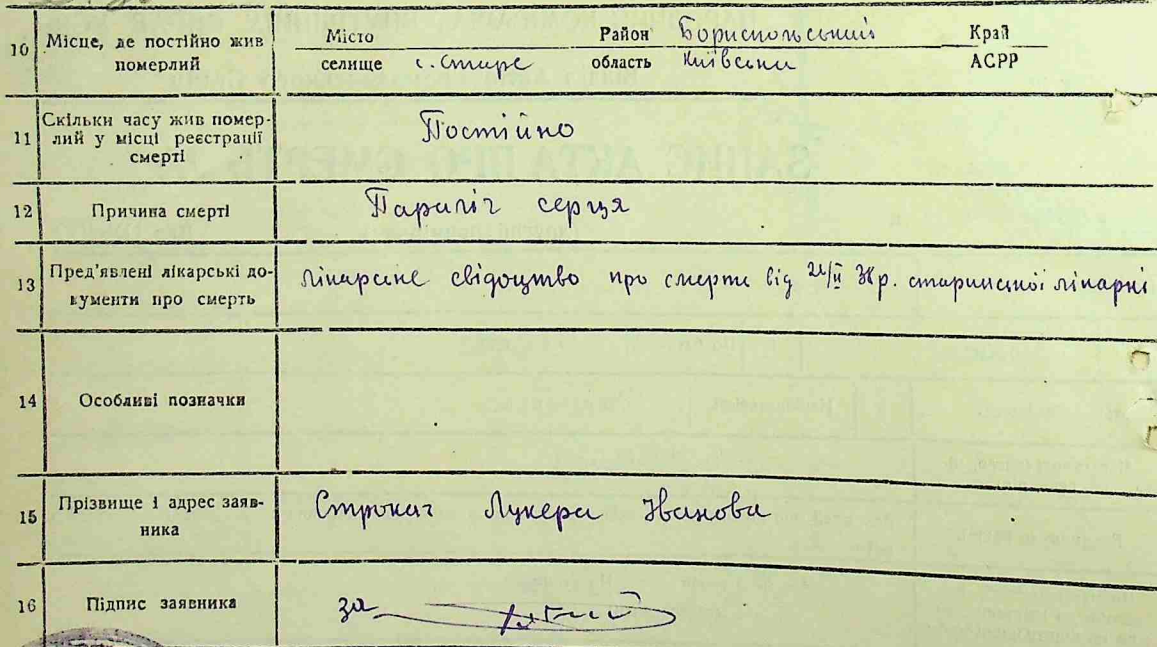 10 Місце, де постійно жив Місто Район Бориспольський Край
померлий селище с. Старе область Київська АСРР
11 Скільки часу жив помер-
лий у місці реєстрації
смерті
Постійно
12 Причина смерті Параліч серця
13 Пред'явлені лікарські до-
кументи про смерть
лікарське свідоцтво про смерть від /ІІ р. старинської лікарні
14 Особливі позначки
15 Прізвище і адрес заяв-
ника
Строкач Лукера Іванова
16 Підпис заявника за